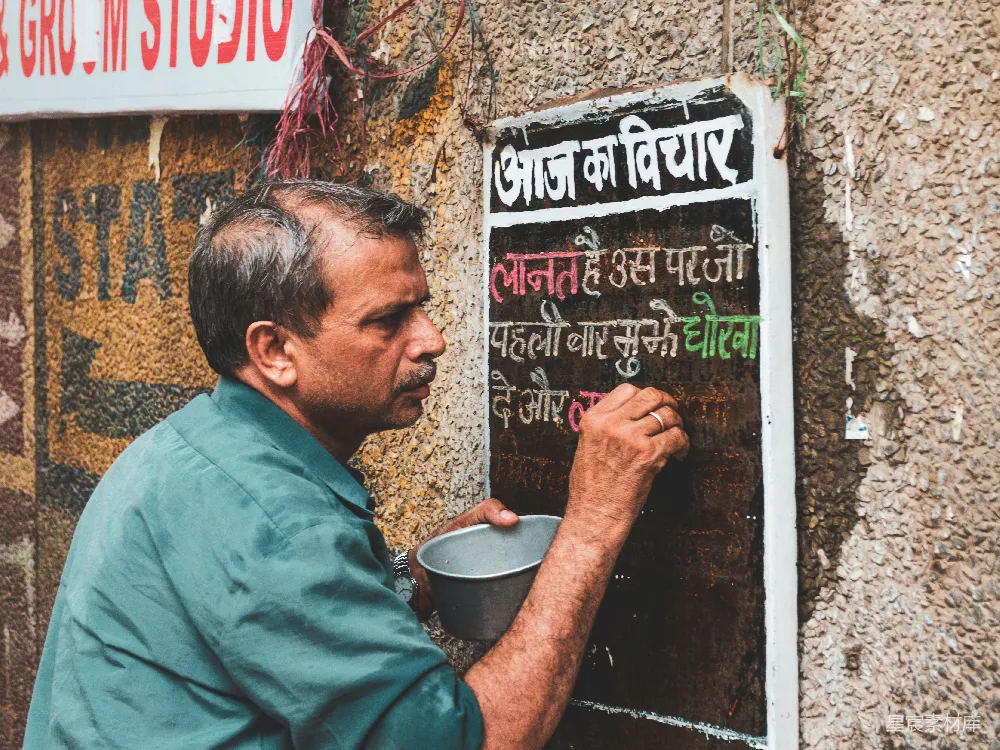 & GROOM STUDIO
STAT
आज का विचार
लानत है उस पर जो
पहली बार मुझे धोखा
दे और ल
星宸素材库